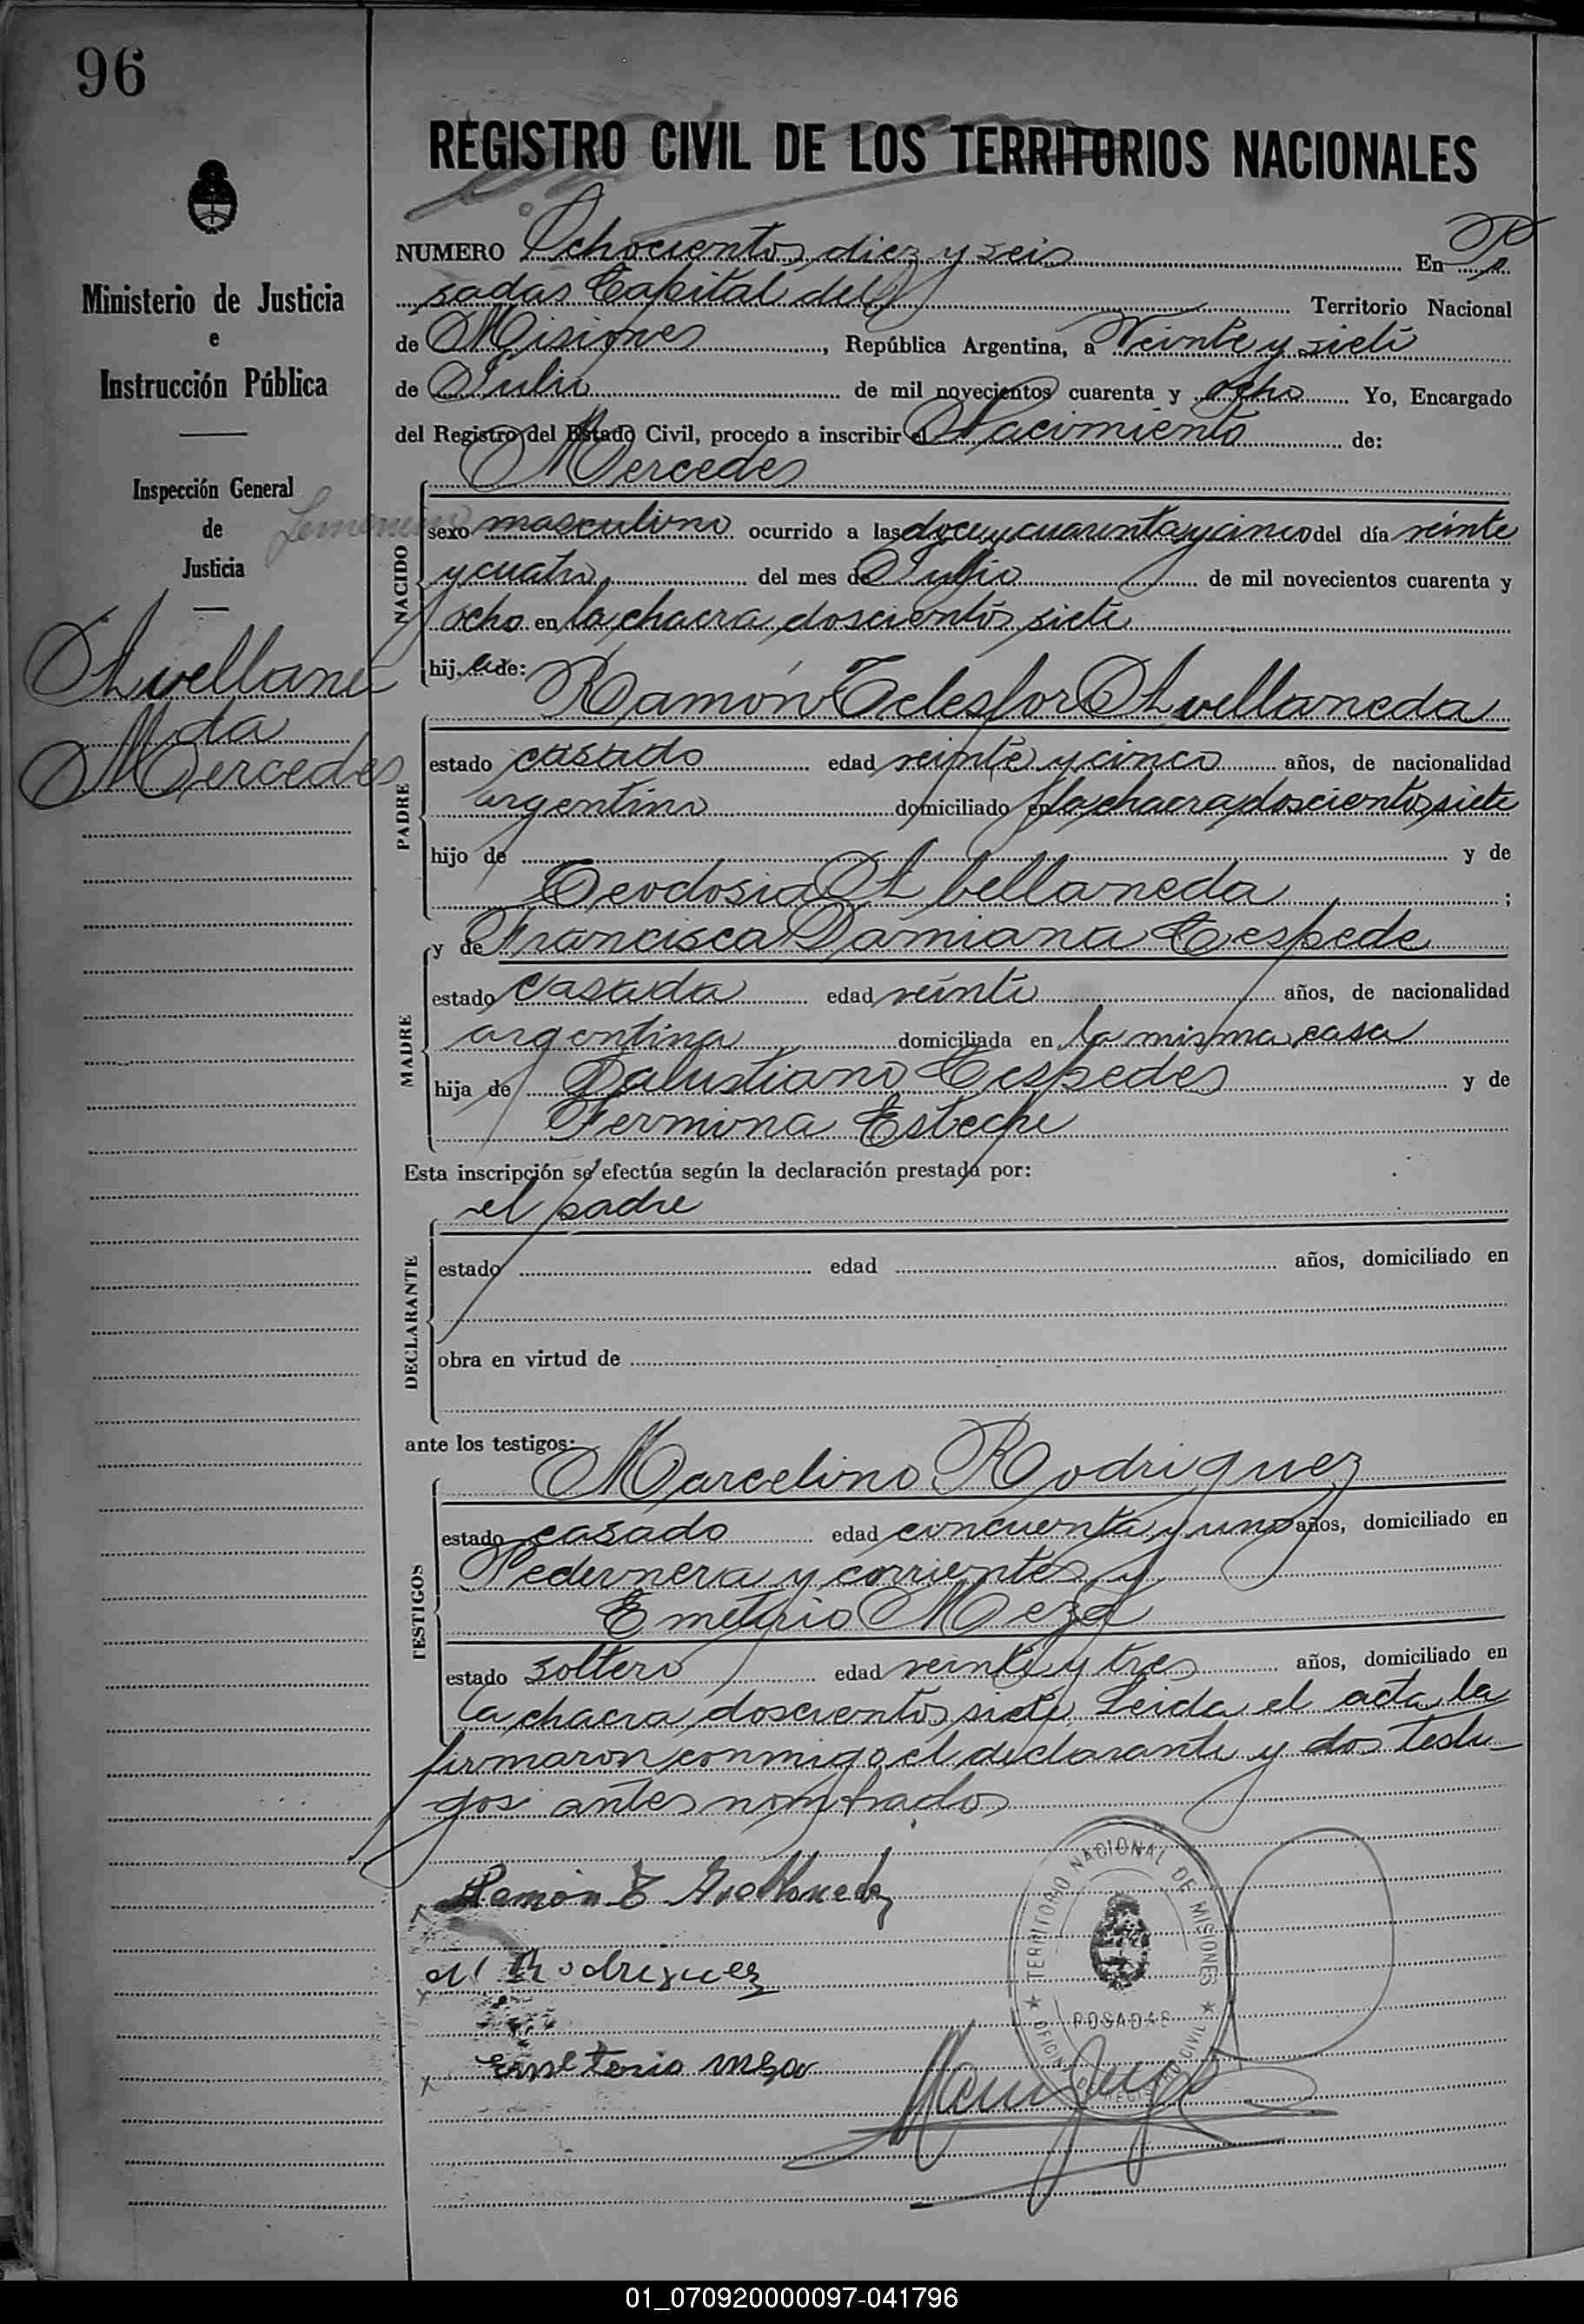 96
REGISTRO CIVIL DE LOS TERRITORIOS NACIONALES
Ministerio de Justicia
e
Instrucción Pública
Inspección General
de
Justicia
Avellane
da
Mercedes
NUMERO Ochocientos diez y seis En Po
sadas Capital del Territorio Nacional
de Misiones, República Argentina, a Veinte y siete
de Julio de mil novecientos cuarenta y ocho Yo, Encargado
del Registro del Estado Civil, procedo a inscribir el Nacimiento de:
Mercedes
NACIDO
Femenino
sexo masculino ocurrido a las doce y cuarenta y cinco del día veinte
y cuatro del mes de Julio de mil novecientos cuarenta y
ocho en la chacra doscientos siete
hij a de:
Ramón Telesfor Avellaneda
PADRE
estado casado edad veinte y cinco años, de nacionalidad
argentino domiciliado en la chacra doscientos siete
hijo de y de
Teodosia Abellaneda ;
y de Francisca Damiana Cespede
MADRE
estado casada edad veinte años, de nacionalidad
argentina domiciliada en la misma casa
hija de Salustiano Cespedes y de
Fermina Esteche
Esta inscripción se efectúa según la declaración prestada por:
el padre
DECLARANTE
estado edad años, domiciliado en
obra en virtud de
ante los testigos:
Marcelino Rodriguez
TESTIGOS
estado casado edad cincuenta y uno años, domiciliado en
Pedernera y corrientes y
Emeterio Meza
estado soltero edad veinte y tres años, domiciliado en
la chacra doscientos siete Leida el acta la
firmaron conmigo el declarante y dos testi-
gos antes nombrados
Ramón T Avellaneda
M Rodriguez
Emeterio Mesa
TERRITORIO NACIONAL DE MISIONES
POSADAS
OFICINA DE REGISTRO CIVIL
01_070920000097-041796